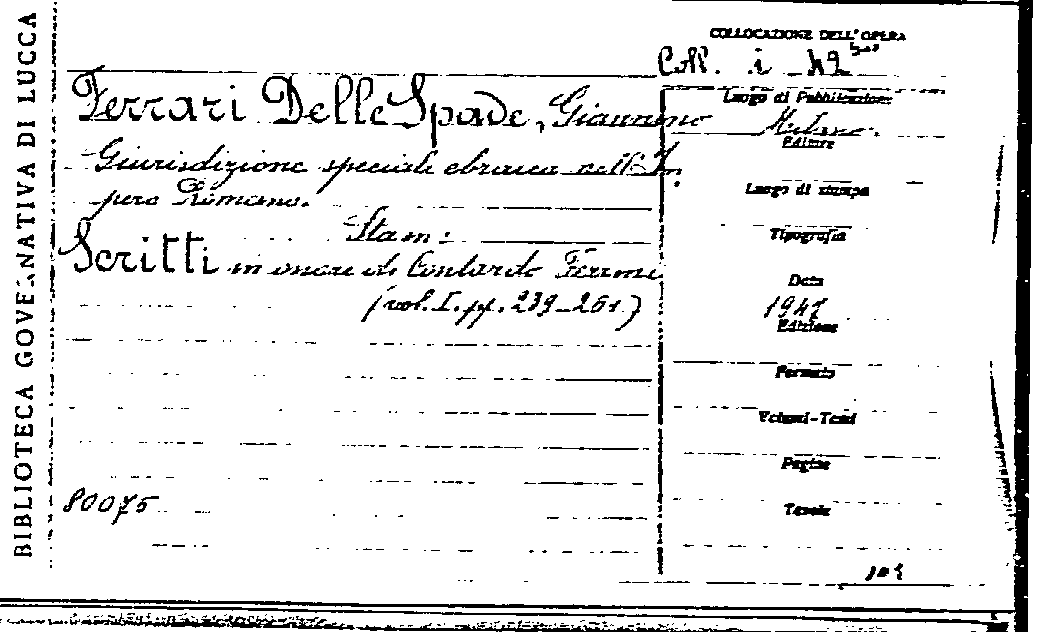 BIBLIOTECA GOVERNATIVA DI LUCCA
COLLOCAZIONE DELL'OPERA
Coll. i 42
Ferrari Delle Spade, Giannino
Giurisdizione speciale ebraica nell'Im-
pero Romano.
Stam:
Scritti in onore di Contardo Ferrini
(vol. I. pp. 239-261)
80075
Luogo di Pubblicazione
Milano.
Editore
Luogo di stampa
Tipografia
Data
1947
Edizione
Formato
Volumi-Tomi
Pagine
Tavole